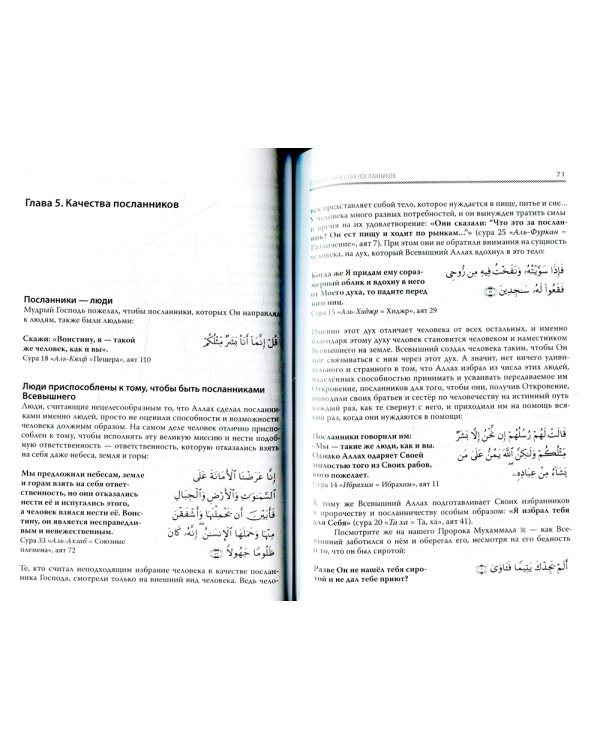 Глава 5. Качества посланников
Посланники — люди
Мудрый Господь пожелал, чтобы посланники, которых Он направлял
к людям, также были людьми:
Скажи: «Воистину, я — такой
же человек, как и вы».
Сура 18 «Аль-Кяхф «Пещера», аят 110
قُلْ إِنَّمَا أَنَا۠ بَشَرٌ مِّثْلُكُمْ
Люди приспособлены к тому, чтобы быть посланниками
Всевышнего
Люди, считающие нецелесообразным то, что Аллах сделал посланни-
ками именно людей, просто не оценили способности и возможности
человека должным образом. На самом деле человек отлично приспо-
соблен к тому, чтобы исполнять эту великую миссию и нести подоб-
ную ответственность — ответственность, которую отказались взять
на себя даже небеса, земля и горы:
Мы предложили небесам, земле
и горам взять на себя ответ-
ственность, но они отказались
нести её и испугались этого,
а человек взялся нести её. Воис-
тину, он является несправедли-
вым и невежественным.
Сура 33 «Аль-Ахзаб = Союзные
племена», аят 72
إِنَّا عَرَضْنَا ٱلْأَمَانَةَ عَلَى
ٱلسَّمَٰوَٰتِ وَٱلْأَرْضِ وَٱلْجِبَالِ
فَأَبَيْنَ أَن يَحْمِلْنَهَا وَأَشْفَقْنَ
مِنْهَا وَحَمَلَهَا ٱلْإِنسَٰنُ ۖ إِنَّهُۥ كَانَ
ظَلُومًا جَهُولًا
Те, кто считал неподходящим избрание человека в качестве послан-
ника Господа, смотрели только на внешний вид человека. Ведь чело-
КАЧЕСТВА ПОСЛАННИКОВ
71
век представляет собой тело, которое нуждается в пище, питье и сне...
У человека много разных потребностей, и он вынужден тратить силы
и время на их удовлетворение: «Они сказали: "Что это за послан-
ник? Он ест пищу и ходит по рынкам..."» (сура 25 «Аль-Фуркан =
Различение», аят 7). При этом они не обратили внимания на сущность
человека, на дух, который Всевышний Аллах вдохнул в это тело:
Когда же Я придам ему сораз-
мерный облик и вдохну в него
от Моего духа, то падите перед
ним ниц.
Сура 15 «Аль-Хиджр = Хиджр», аят 29
فَإِذَا سَوَّيْتُهُۥ وَنَفَخْتُ فِيهِ مِن رُّوحِى
فَقَعُوا۟ لَهُۥ سَٰجِدِينَ
Именно этот дух отличает человека от всех остальных, и именно
благодаря этому духу человек становится человеком и наместником
Всевышнего на земле. Всевышний создал человека таким, чтобы Он
мог связываться с ним через этот дух. А значит, нет ничего удиви-
тельного и странного в том, что Аллах избрал из числа этих людей,
наделённых способностью принимать и усваивать передаваемое им
Откровение, посланников для того, чтобы они, получив Откровение,
выводили своих братьев и сестёр по человечеству на истинный путь
каждый раз, как те свернут с него, и приходили им на помощь вся-
кий раз, когда они нуждаются в помощи:
Посланники говорили им:
«Мы — такие же люди, как и вы.
Однако Аллах одаряет Своей
милостью того из Своих рабов,
кого пожелает.
Сура 14 «Ибрахим = Ибрахим», аят 11
قَالَتْ لَهُمْ رُسُلُهُمْ إِن نَّحْنُ إِلَّا بَشَرٌ
مِّثْلُكُمْ وَلَٰكِنَّ ٱللَّهَ يَمُنُّ عَلَىٰ مَن
يَشَآءُ مِنْ عِبَادِهِۦ ۖ
К тому же Всевышний Аллах подготавливает Своих избранников
к пророчеству и посланничеству особым образом: «Я избрал тебя
для Себя» (сура 20 «Та ха = Та, ха», аят 41).
Посмотрите же на нашего Пророка Мухаммада ﷺ — как Все-
вышний заботился о нём и оберегал его, несмотря на его бедность
и то, что он был сиротой:
Разве Он не нашёл тебя сиро-
той и не дал тебе приют?
أَلَمْ يَجِدْكَ يَتِيمًا فَـَٔاوَىٰ